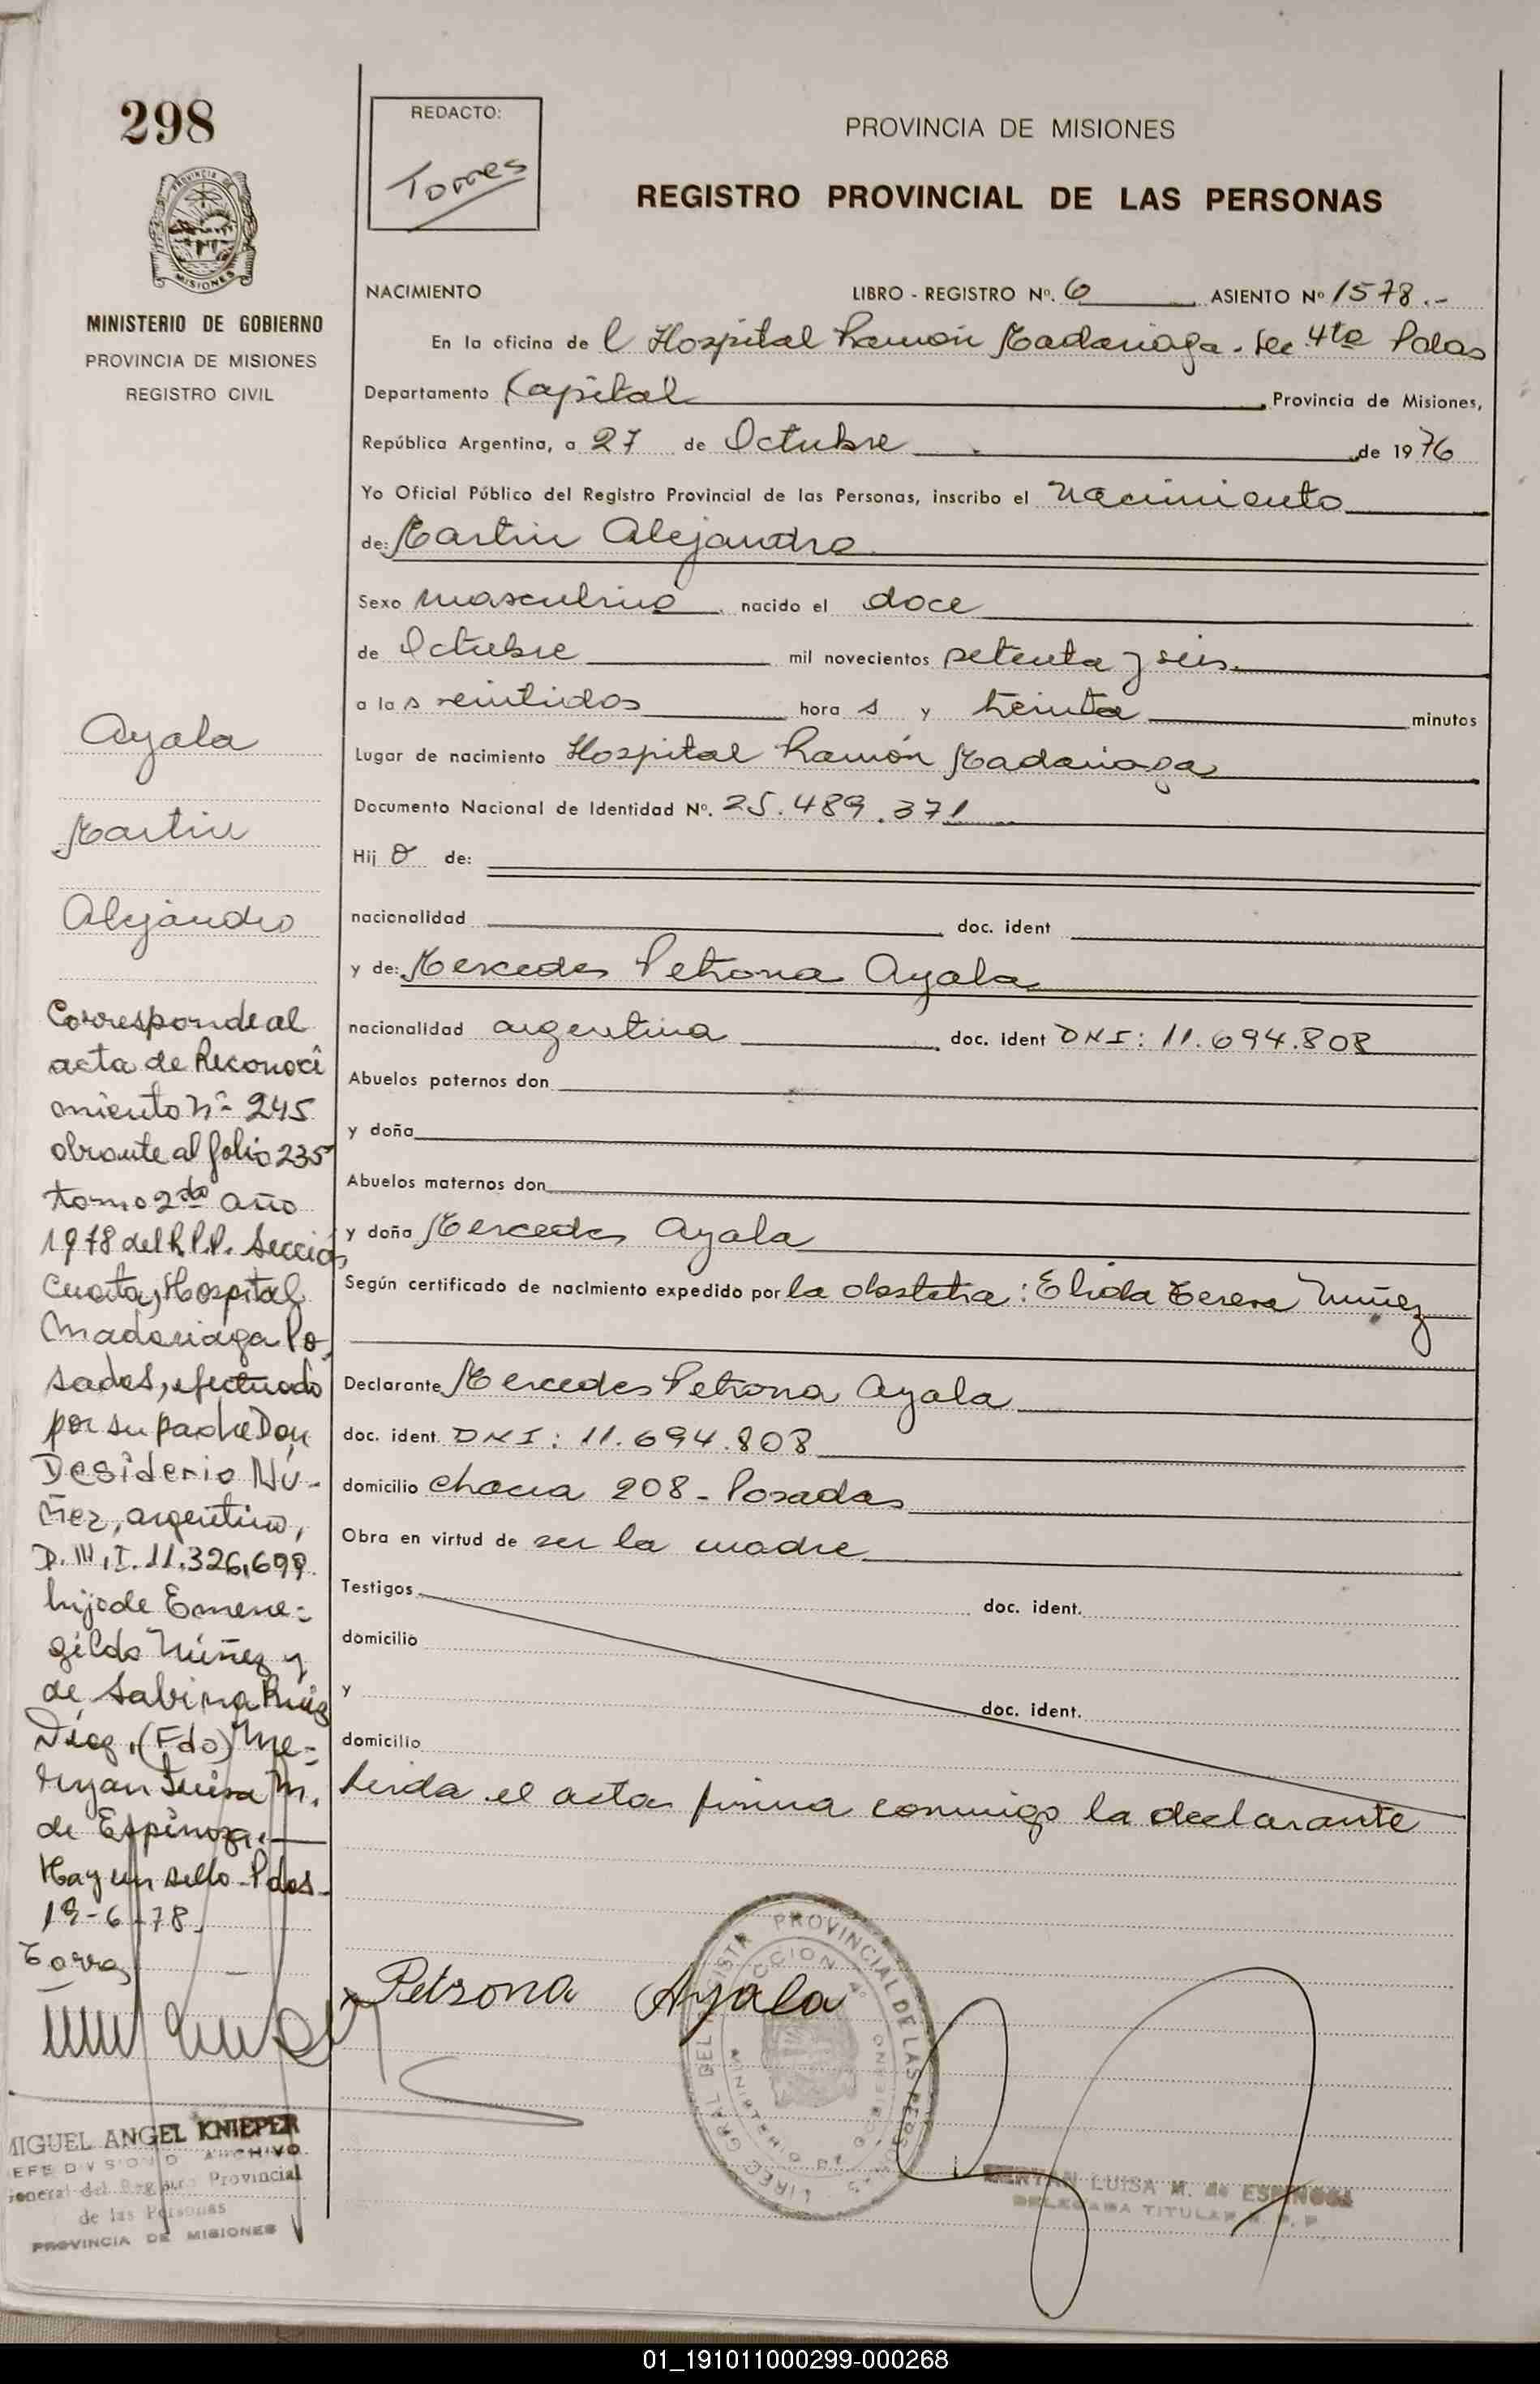 298
REDACTO:
Torres
PROVINCIA DE MISIONES
REGISTRO PROVINCIAL DE LAS PERSONAS
PROVINCIA DE
MISIONES
MINISTERIO DE GOBIERNO
PROVINCIA DE MISIONES
REGISTRO CIVIL
NACIMIENTO LIBRO - REGISTRO Nº. 6 ASIENTO Nº 1578.-
En la oficina de l Hospital Ramón Madariaga - Sec 4ta Pdas
Departamento Capital Provincia de Misiones,
República Argentina, a 27 de Octubre de 1976
Yo Oficial Público del Registro Provincial de las Personas, inscribo el Nacimiento
de: Martin Alejandro
Sexo masculino nacido el doce
de Octubre mil novecientos setenta y seis
a las veintidos hora s y treinta minutos
Lugar de nacimiento Hospital Ramón Madariaga
Documento Nacional de Identidad Nº. 25.489.371
Hij o de:
nacionalidad doc. ident
y de: Mercedes Petrona Ayala
nacionalidad argentina doc. ident DNI: 11.694.808
Abuelos paternos don
y doña
Abuelos maternos don
y doña Mercedes Ayala
Según certificado de nacimiento expedido por la obstetra: Elida Teresa Nuñez
Declarante Mercedes Petrona Ayala
doc. ident. DNI: 11.694.808
domicilio chacra 208 - Posadas
Obra en virtud de ser la madre
Testigos doc. ident.
domicilio
y doc. ident.
domicilio
Leida el acta firma conmigo la declarante
Petrona Ayala
Ayala
Martin
Alejandro
Corresponde al
acta de Reconoci
miento Nº 245
obrante al folio 235
tomo 2do año
1978 del R.P.P. Sección
Cuarta, Hospital
Madariaga Po
sadas, efectuado
por su padre Don
Desiderio Nú-
ñez, argentino,
D.N.I. 11.326.699
hijo de Erme-
gildo Núñez y
de Sabina Ruiz
Díaz, (Fdo) Me-
ryan Luisa M.
de Espinoza.
Hay un sello - Pdas -
19-6-78.
Torres
MIGUEL ANGEL KNIEPER
JEFE DIVISION ARCHIVO
General del Registro Provincial
de las Personas
PROVINCIA DE MISIONES
PROVINCIAL DE LAS PERSONAS
SECCION 4º
MINISTERIO DE GOBIERNO
MERYAN LUISA M. de ESPINOSA
DELEGADA TITULAR R. P. P.
01_191011000299-000268